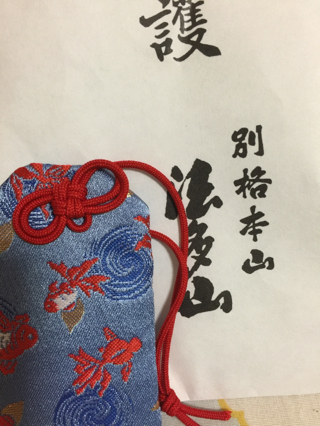 護
別格本山
法多山